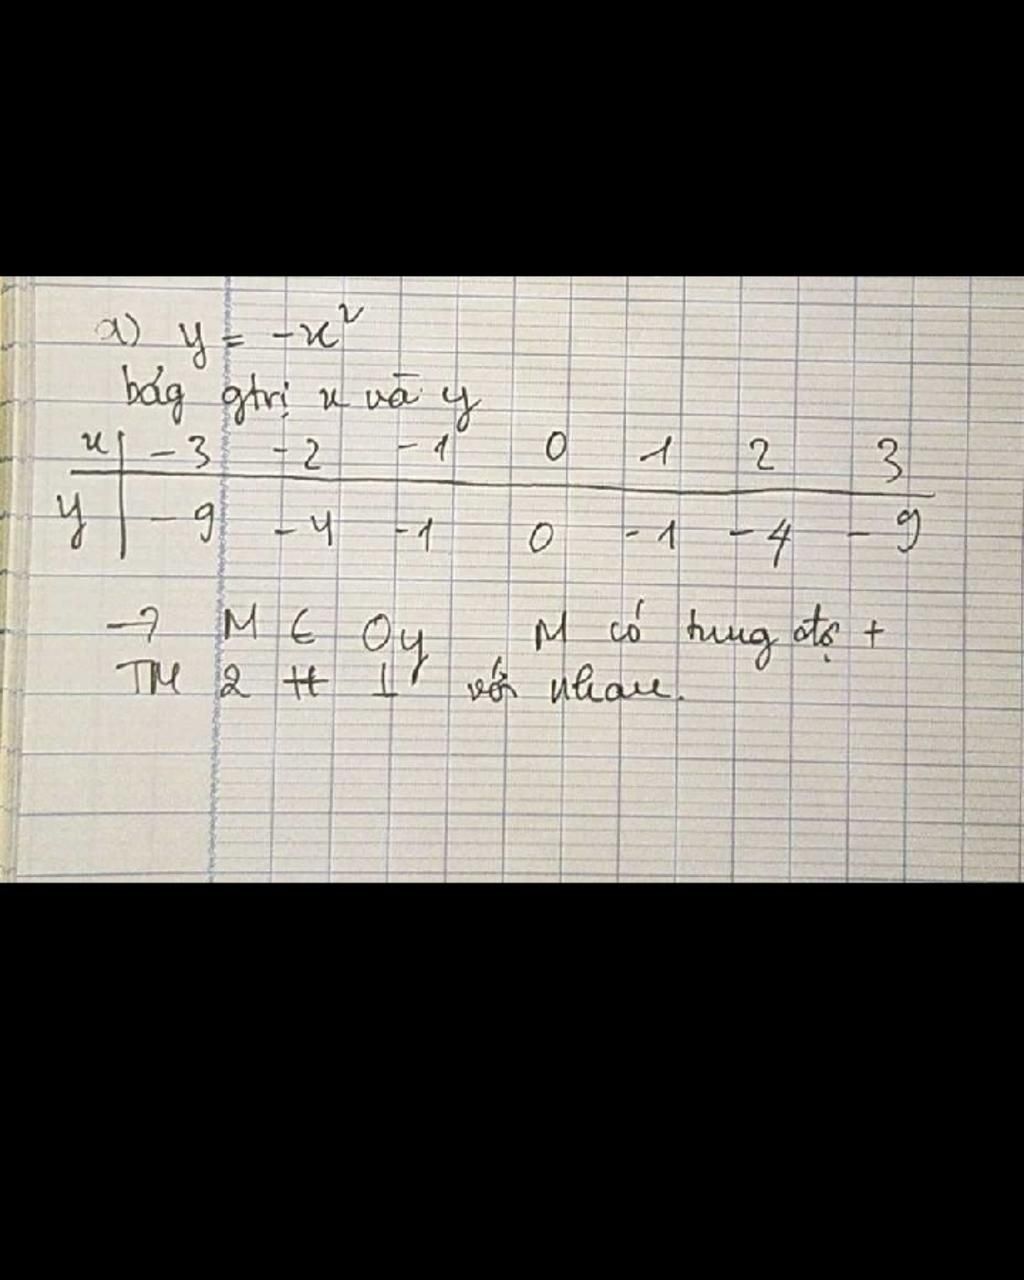 a) y = -x²
bág gtrị x và y
x | -3 -2 -1 0 1 2 3
y | -9 -4 -1 0 -1 -4 -9
→ M ∈ Oy M có tung độ +
TM 2 tt ⊥ với nhau.